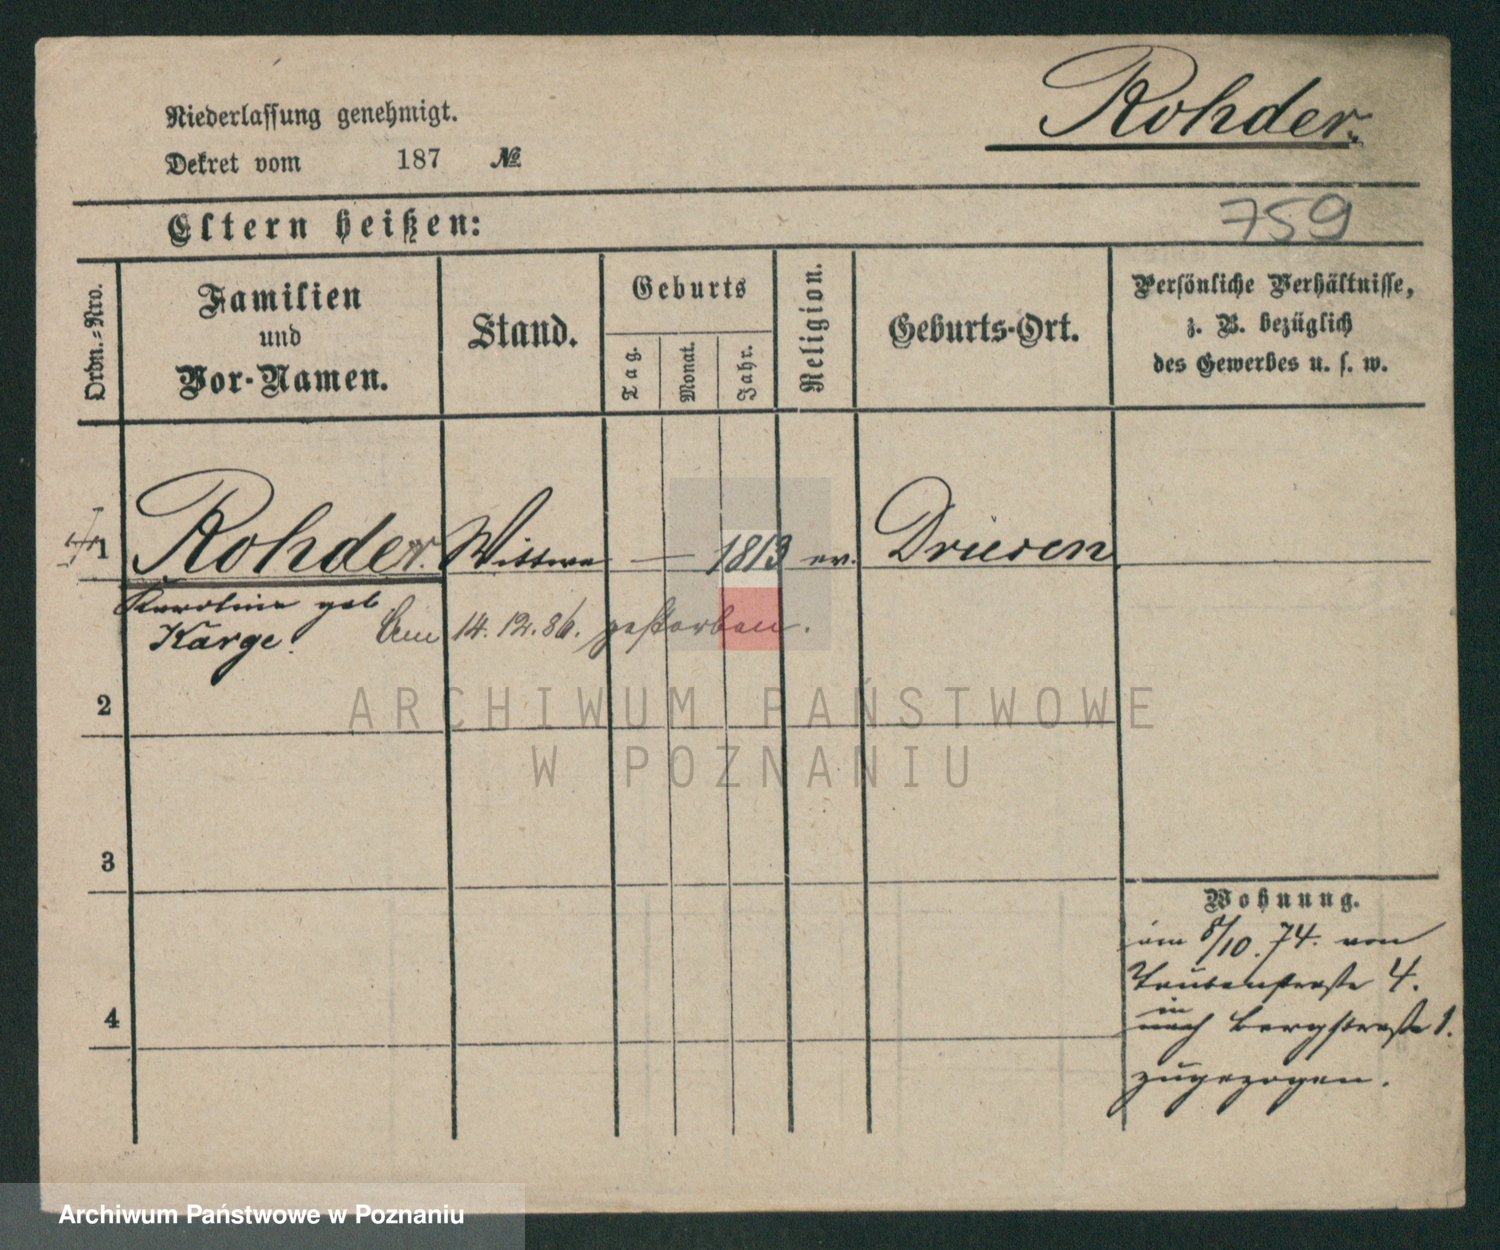 Rohder.
Niederlassung genehmigt.
Dekret vom 187 №
759
Eltern heißen:
Ordn.-Nro.
Familien
und
Vor-Namen.
Stand.
Geburts
Tag.
Monat.
Jahr.
Religion.
Geburts-Ort.
Persönliche Verhältnisse,
z. B. bezüglich
des Gewerbes u. s. w.
1 Rohder. Wittwe — 1813 ev. Driesen
Karoline geb
Karge. Am 14.12.86. gestorben.
2
ARCHIWUM PAŃSTWOWE
W POZNANIU
3
Wohnung.
am 8/10. 74. von
Taubenstraße 4.
in
nach Bergstraße 1.
zugezogen.
4
Archiwum Państwowe w Poznaniu